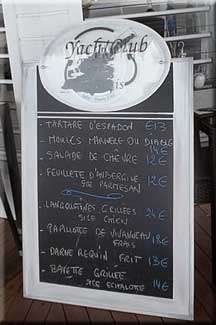 Yacht Club
- TARTARE D'ESPADON €13
- MOULES MARINIÈRE OU DIABLE 14€
- SALADE DE CHÈVRE 12€
- FEUILLETÉ D'AUBERGINE 12€
SCE PARMESAN
- LANGOUSTINES GRILLÉES 24€
SCE CHIEN
- PAPILLOTE DE VIVANNEAU 18€
FRAIS
- DARNE REQUIN FRIT 13€
- BAVETTE GRILLÉE
SCE ECHALOTTE 14€